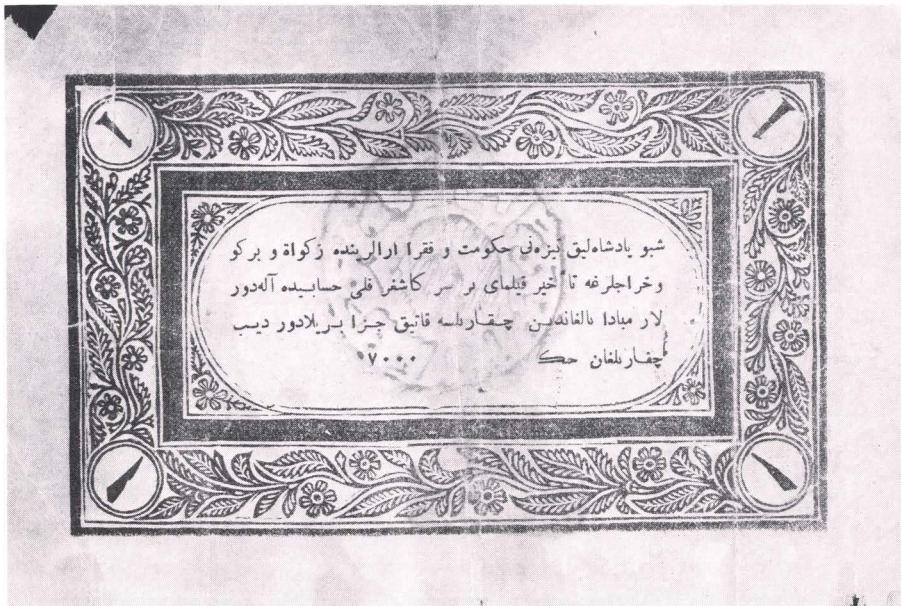 شبو پادشاه‌لیق تیزه‌نی حکومت و فقرا ارالرینده زکواة و برکو
وخراجلرغه تأخیر قیلمای بر سر کاشغر فلی حسابیده آله‌دور
لار مبادا یالغاندین چقاریلسه قاتیق جزا بریلادور دیب
چقاریلغان حک ۷۰۰۰
۱
۱
۱
۱